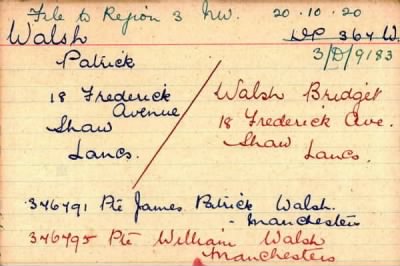 File to Region 3 NW. 20.10.20
Walsh DP 364 W.
3/D/9183
Patrick
18 Frederick
Avenue
Shaw
Lancs.
Walsh Bridget
18 Frederick Ave.
Shaw
Lancs.
346491 Pte James Patrick Walsh.
- Manchesters
346495 Pte William Walsh
Manchesters